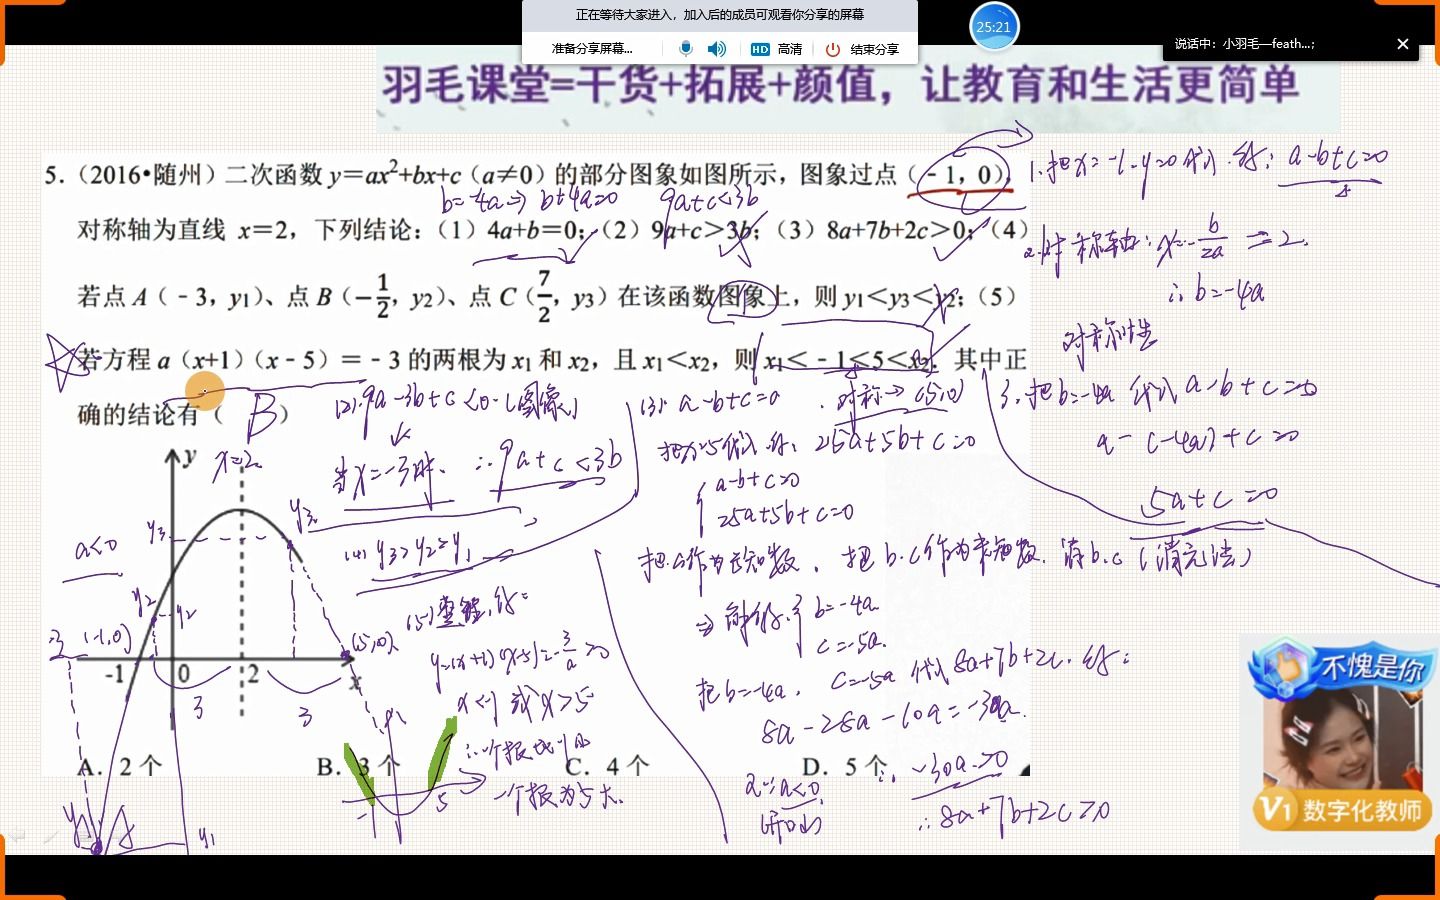 正在等待大家进入，加入后的成员可观看你分享的屏幕
准备分享屏幕... HD 高清 结束分享
25:21
说话中：小羽毛—feath...;
羽毛课堂=干货+拓展+颜值，让教育和生活更简单
5.（2016•随州）二次函数 y＝ax²+bx+c（a≠0）的部分图象如图所示，图象过点（﹣1，0），
b=-4a⇒ b+4a=0
9a+c<3b
对称轴为直线 x＝2，下列结论：（1）4a+b＝0；（2）9a+c＞3b；（3）8a+7b+2c＞0；（4）
若点 A（﹣3，y₁）、点 B（﹣1/2，y₂）、点 C（7/2，y₃）在该函数图象上，则 y₁＜y₃＜y₂；（5）
若方程 a（x+1）（x﹣5）＝﹣3 的两根为 x₁ 和 x₂，且 x₁＜x₂，则 x₁＜﹣1＜5＜x₂．其中正
确的结论有（ B ）
1.把x=-1.y=0代入.得：a-b+c=0
2.对称轴：x=-b/2a=2.
∴b=-4a
对称性
3.把b=-4a 代入a-b+c=0
a-(-4a)+c=0
5a+c=0
(2).9a-3b+c<0-(图像)
当x=-3时. ∴9a+c<3b
(3). a-b+c=0 . 对称→(5,0)
把x=5代入.得：25a+5b+c=0
a-b+c=0
25a+5b+c=0
把a作为已知数，把b.c作为未知数.消b.c(消元法)
⇒解得: b=-4a
c=-5a.
把b=-4a，c=-5a代入8a+7b+2c.得：
8a-28a-10a=-30a.
2∵a<0
∴-30a>0
∴8a+7b+2c>0
(4). y₃>y₂>y₁
(5)整理,得：
y=(x+1)(x-5)=-3/a>0
x<-1 或 x>5
一个根为5大.
x=2
a<0
y
y₃
y₃
y₂
y₂
-3 (-1,0)
(5,0)
-1 0 2 x
3 3
-1 5
y₁
A．2 个 B．3 个 C．4 个 D．5 个
不愧是你
V1 数字化教师